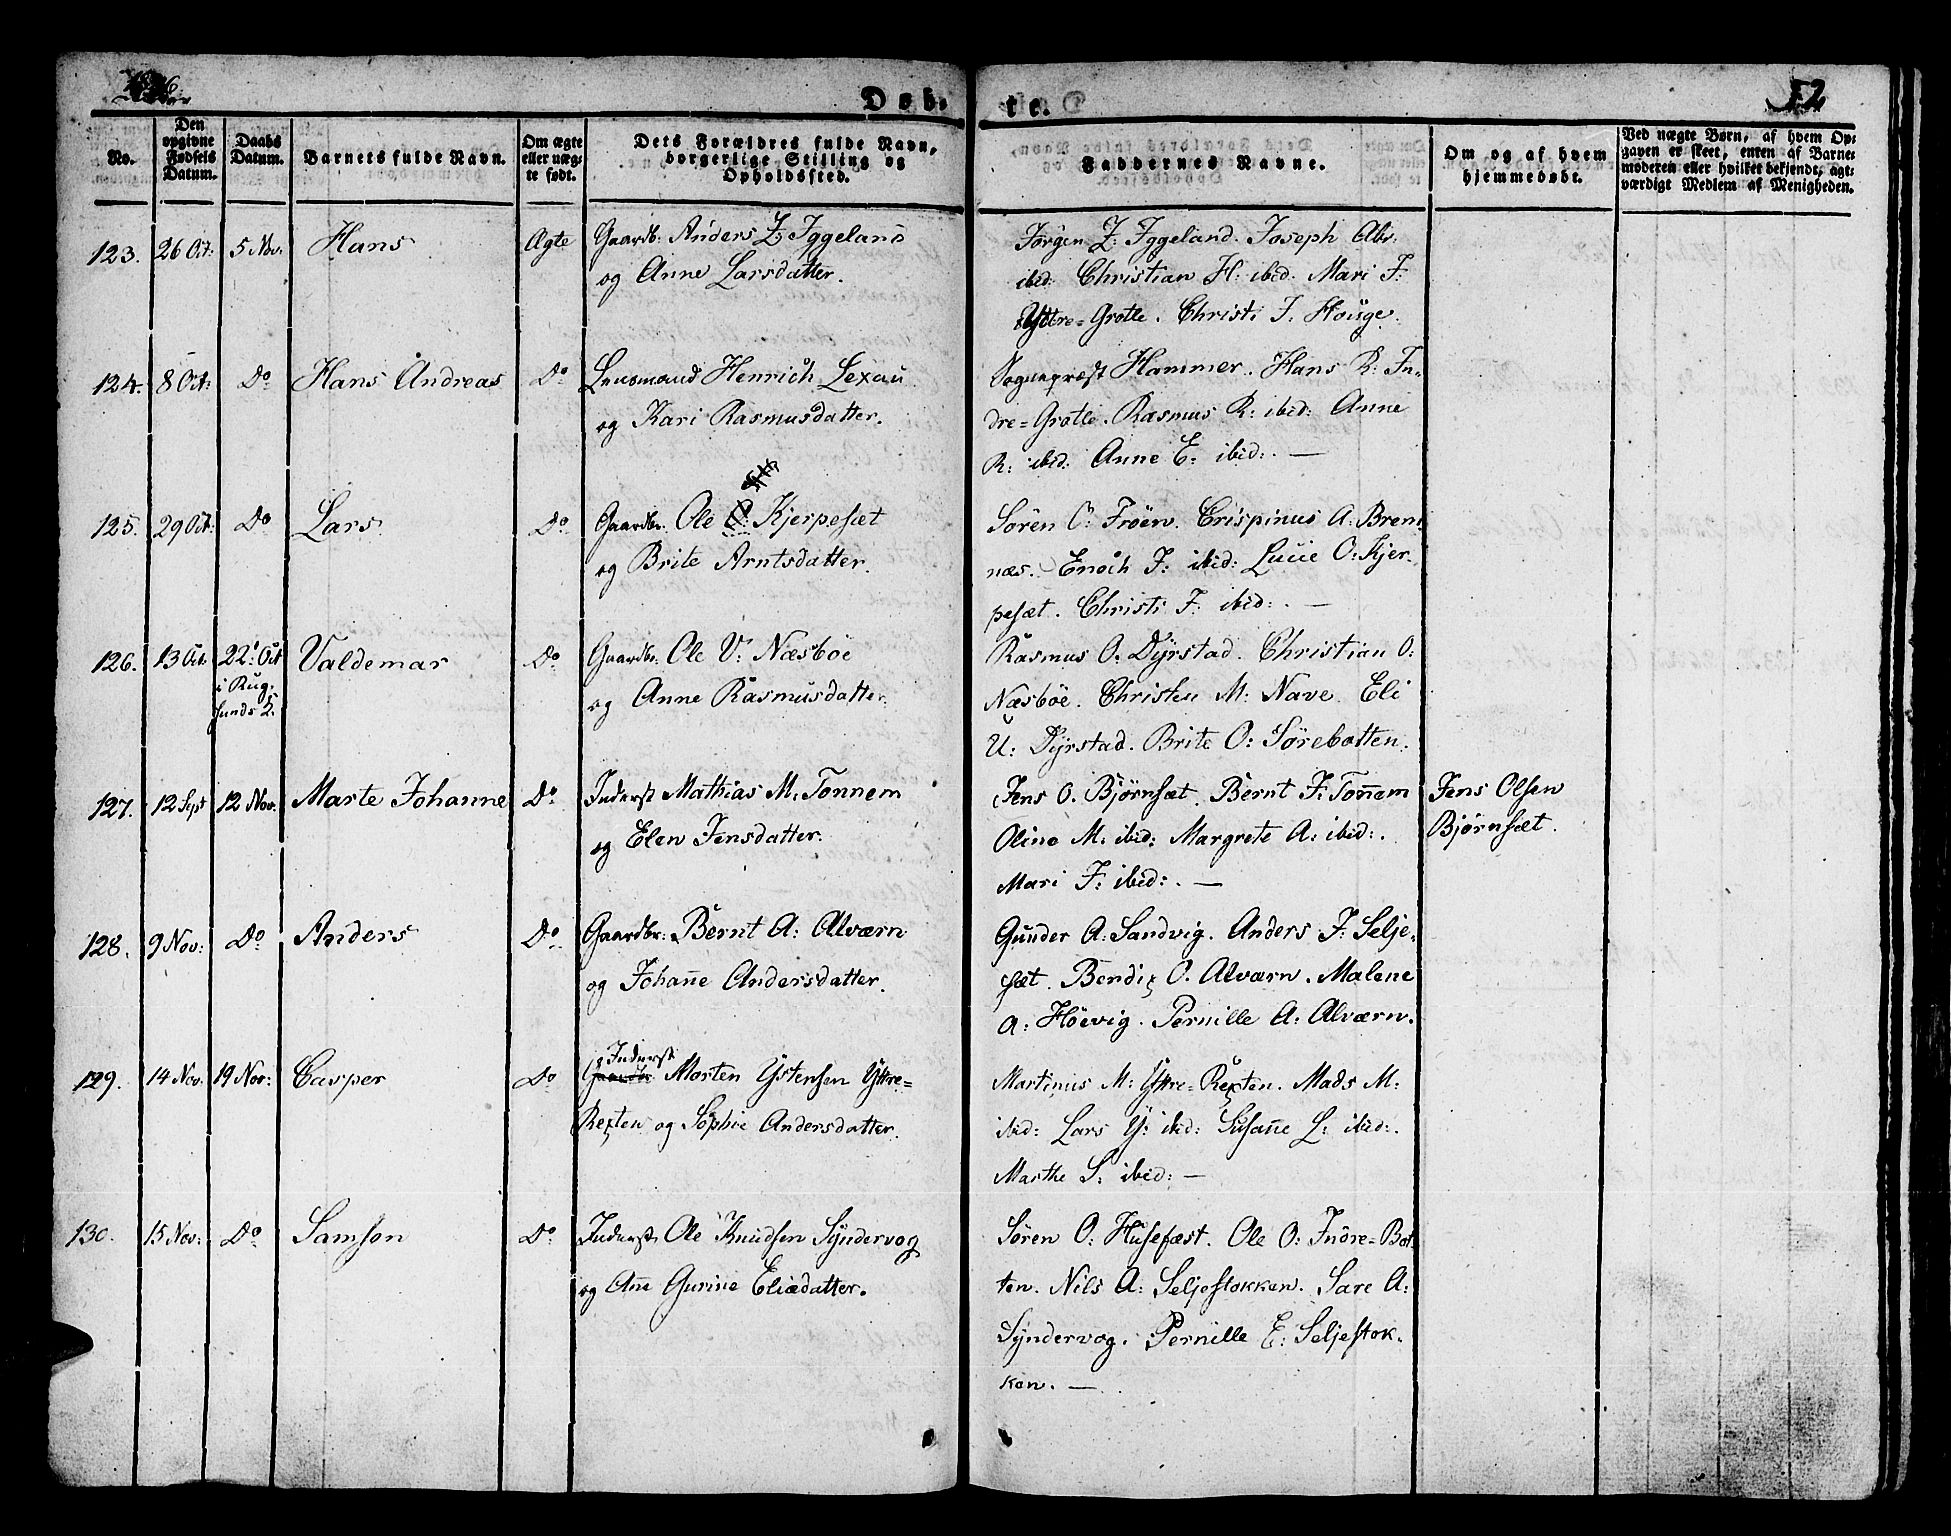 1826
Døb-
te.
52
No.
Den opgivne Fødsels Datum.
Daabs Datum.
Barnets fulde Navn.
Om ægte eller uæg-te født.
Dets Forældres fulde Navn, borgerlige Stilling og Opholdssted.
Faddernes Navne.
Om og af hvem hjemmedøbt.
Ved uægte Børn, af hvem Op-gaven er skeet, enten af Barne-moderen eller hvilket bekjendt, agt-værdigt Medlem af Menigheden.
123. 26 Oct: 5 Nov. Hans Ægte Gaardb: Anders Z: Iggeland
og Anne Larsdatter.
Jørgen Z: Iggeland. Joseph Abr:
ibid: Christian H: ibid. Mari J:
Yttre-Grotle. Christi J. Houge.
124. 8 Oct: Do Hans Andreas Do Lensmand Henrich Lexau
og Kari Rasmusdatter.
Sognepræst Hammer. Hans R: In-
dre-Grotle. Rasmus R: ibid: Anne
R: ibid: Anne E: ibid:. —
125. 29 Oct: Do Lars Do Gaardbr. Ole Kjerpesæt
og Brite Arntsdatter.
Sören O: Fröen. Crispinus A: Brem-
næs. Enoch J: ibid: Lucie O: Kjer-
pesæt. Christi J: ibid:. —
126. 13 Oct. 22: Oct i Rug-sunds K. Valdemar Do Gaardbr. Ole V: Næsböe
og Anne Rasmusdatter.
Rasmus O: Dyrstad. Christian O:
Næsböe. Christen M: Nave. Eli
U: Dyrstad. Brite O: Sörebotten.
127. 12 Sept 12 Nov. Marte Johanne Do Inderst Mathias M: Tonnem
og Elen Jensdatter.
Jens O. Bjørnsæt. Bernt J: Tonnem
Oline M: ibid: Margrete A: ibid:.
Mari J: ibid:. —
Jens Olsen
Bjørnsæt.
128. 9 Nov: Do Anders Do Gaardbr: Bernt A: Alværn
og Johanne Andersdatter.
Gunder A: Sandvig. Anders J: Selje-
sæt. Bendix O. Alværn. Malene
A: Höevig. Pernille A: Alværn.
129. 14 Nov: 19 Nov: Casper Do Inderst
Gaardbr Morten Ystensen Yttre-
Rexten og Sophie Andersdatter.
Martinus M: Yttre-Rexten. Mads M:
ibid: Lars Y: ibid: Susanne L: ibid:.
Marthe S: ibid: —
130. 15 Nov: Do Samson Do Inderst Ole Knudsen Syndervog
og Ane Gurine Eliædatter.
Sören O: Husefæst. Ole O: Indre-Bot-
ten. Nils A: Seljestokken. Sare A:
Syndervog. Pernille E: Seljestok-
ken. —